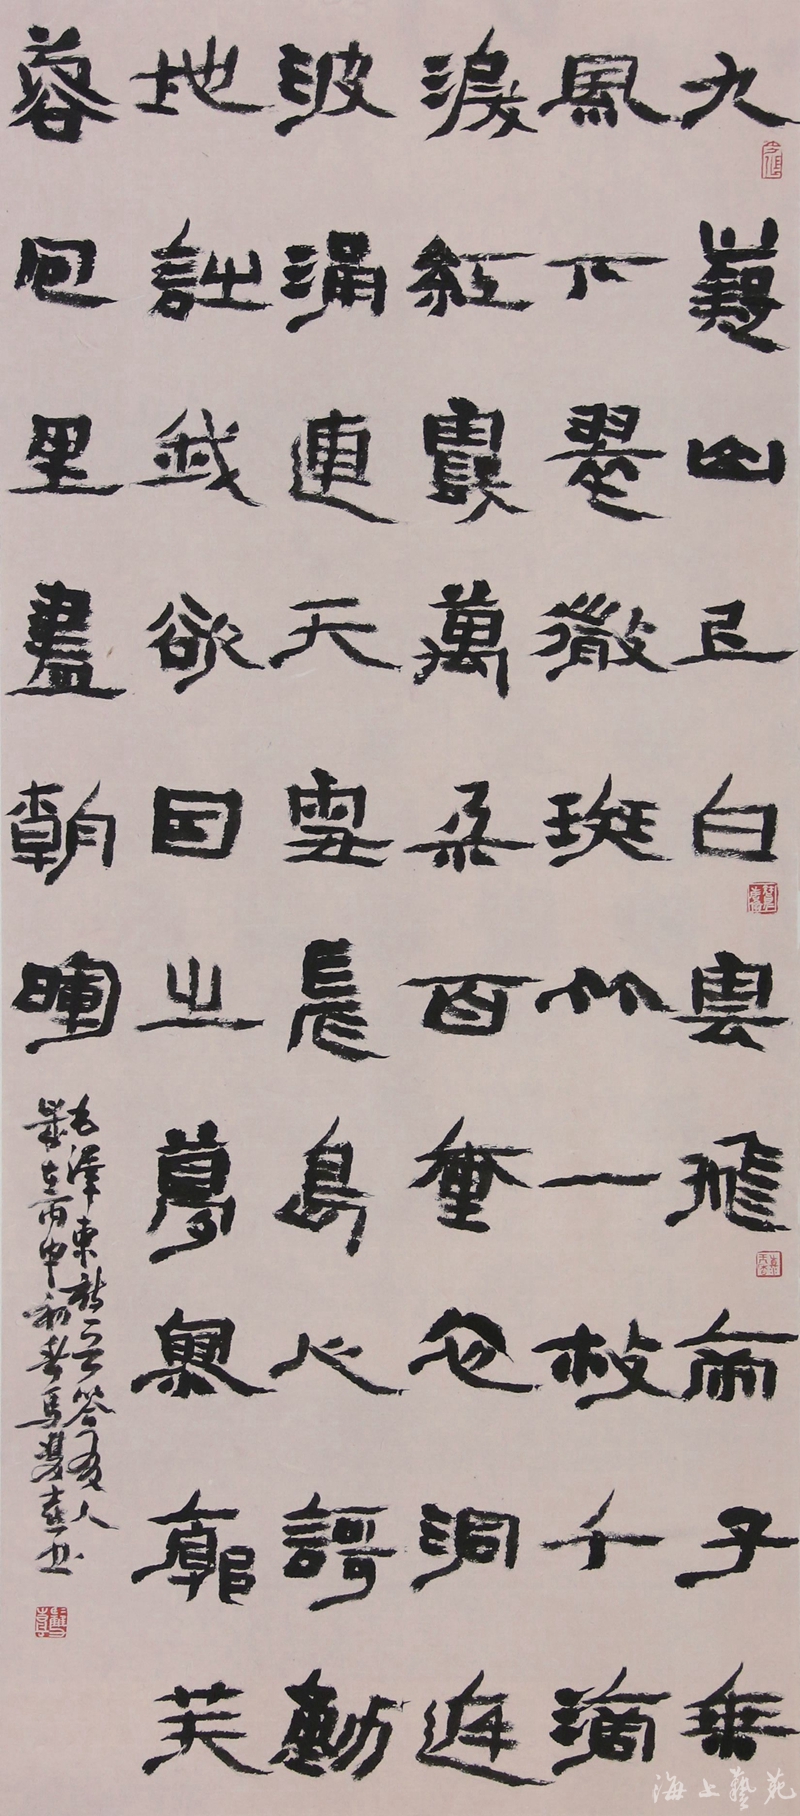 九嶷山上白雲飛帝子乘
風下翠微斑竹一枝千滴
淚紅霞萬朵百重衣洞庭
波涌連天雪長島人謌動
地詩我欲因之夢寥廓芙
蓉国里盡朝暉
毛澤東詩一首答友人
歲在丙申初春馬雙喜书
海上藝苑